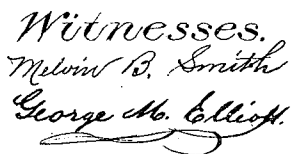 Witnesses.
Melvin B. Smith
George M. Elliott.